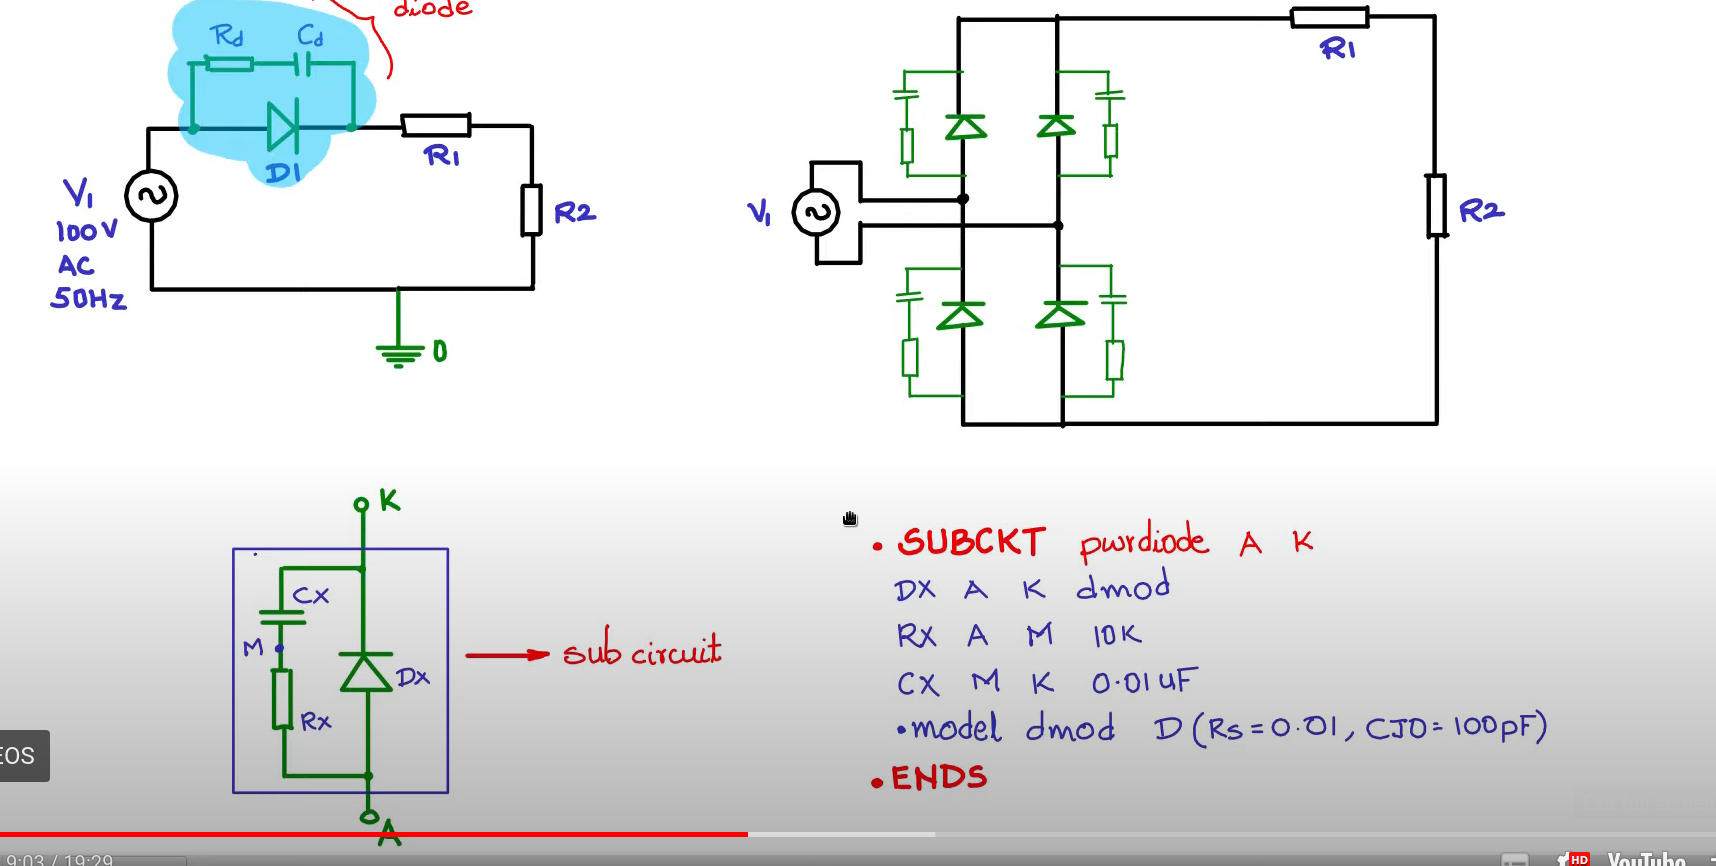 diode
Rd Cd
D1
R1
V1
100V
AC
50Hz
R2
0
R1
V1
R2
K
Cx
M
Dx
Rx
A
sub circuit
. SUBCKT pwrdiode A K
DX A K dmod
RX A M 10K
CX M K 0.01uF
.model dmod D (Rs=0.01, CJ0=100pF)
.ENDS
EOS
9:03 / 19:29
HD YouTube